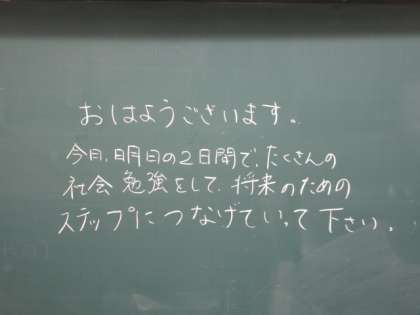 おはようございます。
今日、明日の2日間で、たくさんの
社会勉強をして、将来のための
ステップにつなげていって下さい。